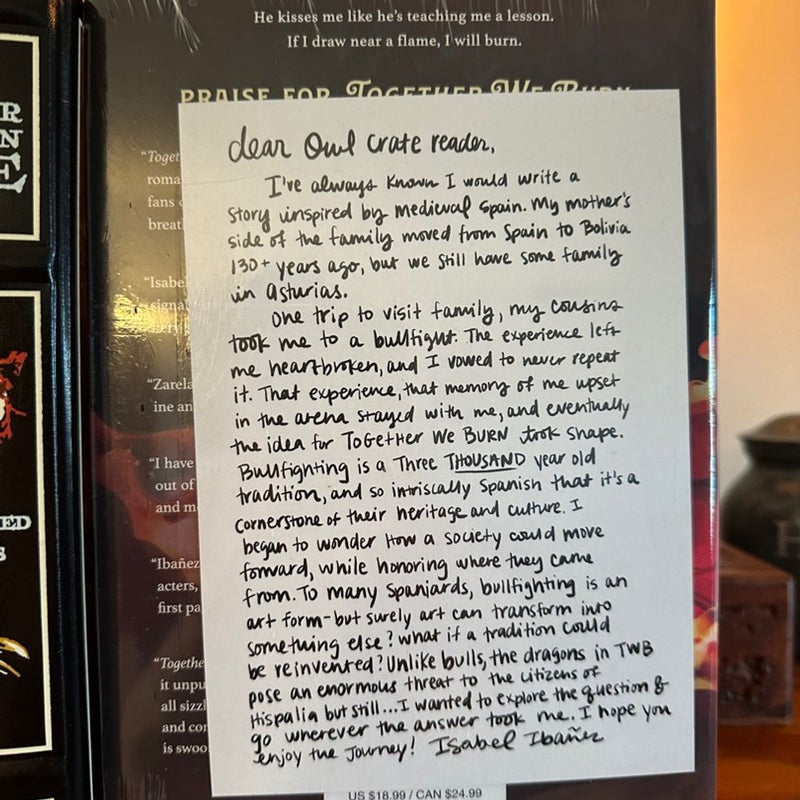 He kisses me like he's teaching me a lesson.
If I draw near a flame, I will burn.
PRAISE FOR Together We Burn
R
N
E
ED
S
"Toget
roma
fans
breat
"Isabe
signa
"Zarela
ine an
"I have
out of
and m
"Ibañez
acters,
first pa
"Togethe
it unpu
all sizzl
and cor
is swoo
dear Owl Crate reader,
I've always known I would write a
story inspired by medieval Spain. My mother's
side of the family moved from Spain to Bolivia
130+ years ago, but we still have some family
in Asturias.
One trip to visit family, my cousins
took me to a bullfight. The experience left
me heartbroken, and I vowed to never repeat
it. That experience, that memory of me upset
in the arena stayed with me, and eventually
the idea for ToGetHer We BURN took shape.
Bullfighting is a Three THOUSAND year old
tradition, and so intriscally Spanish that it's a
cornerstone of their heritage and culture. I
began to wonder how a society could move
forward, while honoring where they came
from. To many Spaniards, bullfighting is an
art form-but surely art can transform into
something else? what if a tradition could
be reinvented? Unlike bulls, the dragons in TWB
pose an enormous threat to the citizens of
Hispalia but still... I wanted to explore the question &
go wherever the answer took me. I hope you
enjoy the journey! Isabel Ibañez
US $18.99 / CAN $24.99